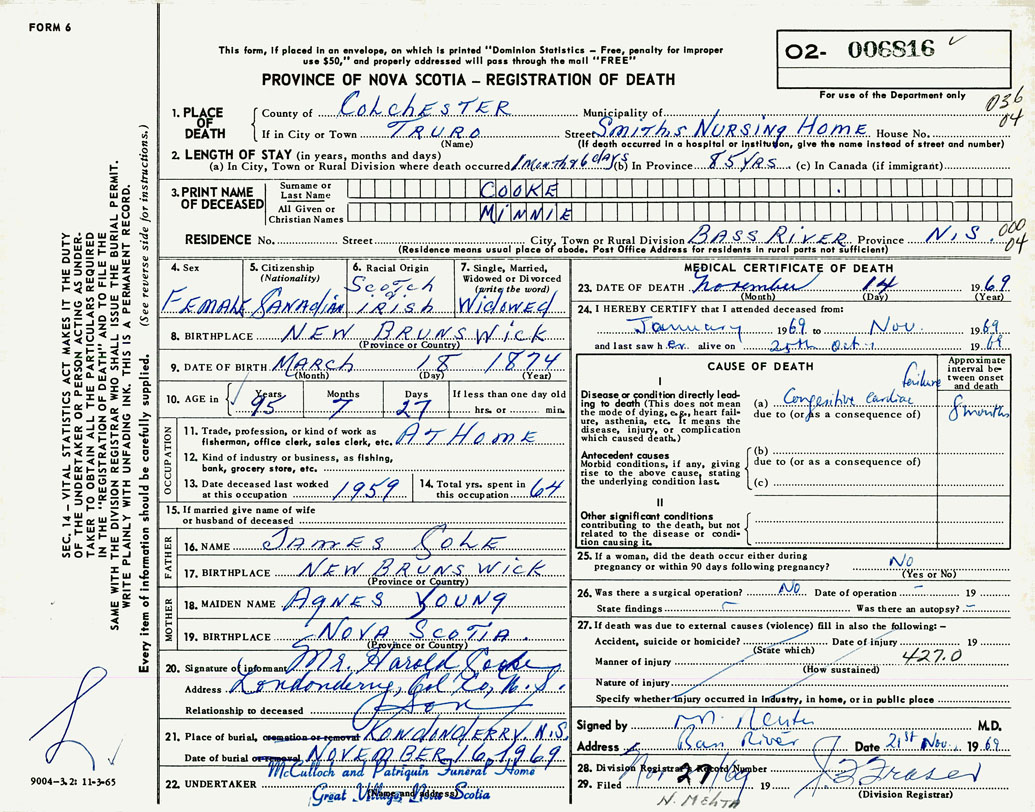 FORM 6
This form, if placed in an envelope, on which is printed "Dominion Statistics – Free, penalty for improper
use $50," and properly addressed will pass through the mail "FREE"
PROVINCE OF NOVA SCOTIA – REGISTRATION OF DEATH
O2- 006816
For use of the Department only
036
04
1. PLACE OF DEATH
County of COLCHESTER Municipality of
If in City or Town TRURO Street SMITHS NURSING HOME House No.
(Name) (If death occurred in a hospital or institution, give the name instead of street and number)
2. LENGTH OF STAY (in years, months and days)
(a) In City, Town or Rural Division where death occurred 1 month & 6 days (b) In Province 85 YRS (c) In Canada (if immigrant)
3. PRINT NAME OF DECEASED
Surname or Last Name COOKE
All Given or Christian Names MINNIE
RESIDENCE No. Street City, Town or Rural Division BASS RIVER Province N.S.
000
04
(Residence means usual place of abode. Post Office Address for residents in rural parts not sufficient)
4. Sex FEMALE
5. Citizenship (Nationality) CANADIAN
6. Racial Origin SCOTCH IRISH
7. Single, Married, Widowed or Divorced (write the word) WIDOWED
8. BIRTHPLACE NEW BRUNSWICK
(Province or Country)
9. DATE OF BIRTH MARCH 18 1874
(Month) (Day) (Year)
10. AGE in Years 95 Months 7 Days 27 If less than one day old hrs. or min.
OCCUPATION
11. Trade, profession, or kind of work as fisherman, office clerk, sales clerk, etc. AT HOME
12. Kind of industry or business, as fishing, bank, grocery store, etc.
13. Date deceased last worked at this occupation 1959
14. Total yrs. spent in this occupation 64
15. If married give name of wife or husband of deceased
FATHER
16. NAME JAMES COLE
17. BIRTHPLACE NEW BRUNSWICK
(Province or Country)
MOTHER
18. MAIDEN NAME AGNES YOUNG
19. BIRTHPLACE NOVA SCOTIA.
(Province or Country)
20. Signature of informant Mr. Harold Cooke
Address Londonderry, Col Co, N.S.
Relationship to deceased Son
21. Place of burial, cremation or removal LONDONDERRY. N.S.
Date of burial or removal NOVEMBER 16, 1969
22. UNDERTAKER McCulloch and Patriquin Funeral Home
(Name and address) Great Village, Nova Scotia
MEDICAL CERTIFICATE OF DEATH
23. DATE OF DEATH November 14 1969
(Month) (Day) (Year)
24. I HEREBY CERTIFY that I attended deceased from:
January 1969 to Nov. 1969
and last saw her alive on 25th Oct. 1969
CAUSE OF DEATH
Approximate interval between onset and death
I
Disease or condition directly leading to death (This does not mean the mode of dying, e.g., heart failure, asthenia, etc. It means the disease, injury, or complication which caused death.)
(a) Congestive cardiac failure 8 months
due to (or as a consequence of)
Antecedent causes
Morbid conditions, if any, giving rise to the above cause, stating the underlying condition last.
(b)
due to (or as a consequence of)
(c)
II
Other significant conditions
contributing to the death, but not related to the disease or condition causing it.
25. If a woman, did the death occur either during pregnancy or within 90 days following pregnancy? No
(Yes or No)
26. Was there a surgical operation? No Date of operation – 19
State findings – Was there an autopsy? –
27. If death was due to external causes (violence) fill in also the following: –
Accident, suicide or homicide? Date of injury 19
(State which)
Manner of injury 427.0
(How sustained)
Nature of injury
Specify whether injury occurred in industry, in home, or in public place
Signed by M.D.
Address Bass River Date 21st Nov. 1969
28. Division Registrar's Record Number
29. Filed Nov 27/69 19 Fraser
(Division Registrar)
N. MEHTA
SEC. 14 – VITAL STATISTICS ACT MAKES IT THE DUTY
OF THE UNDERTAKER OR PERSON ACTING AS UNDER-
TAKER TO OBTAIN ALL THE PARTICULARS REQUIRED
IN THE "REGISTRATION OF DEATH" AND TO FILE THE
SAME WITH THE DIVISION REGISTRAR WHO SHALL ISSUE THE BURIAL PERMIT.
WRITE PLAINLY WITH UNFADING INK. THIS IS A PERMANENT RECORD.
Every item of information should be carefully supplied. (See reverse side for instructions.)
9004–3.2: 11-3-65